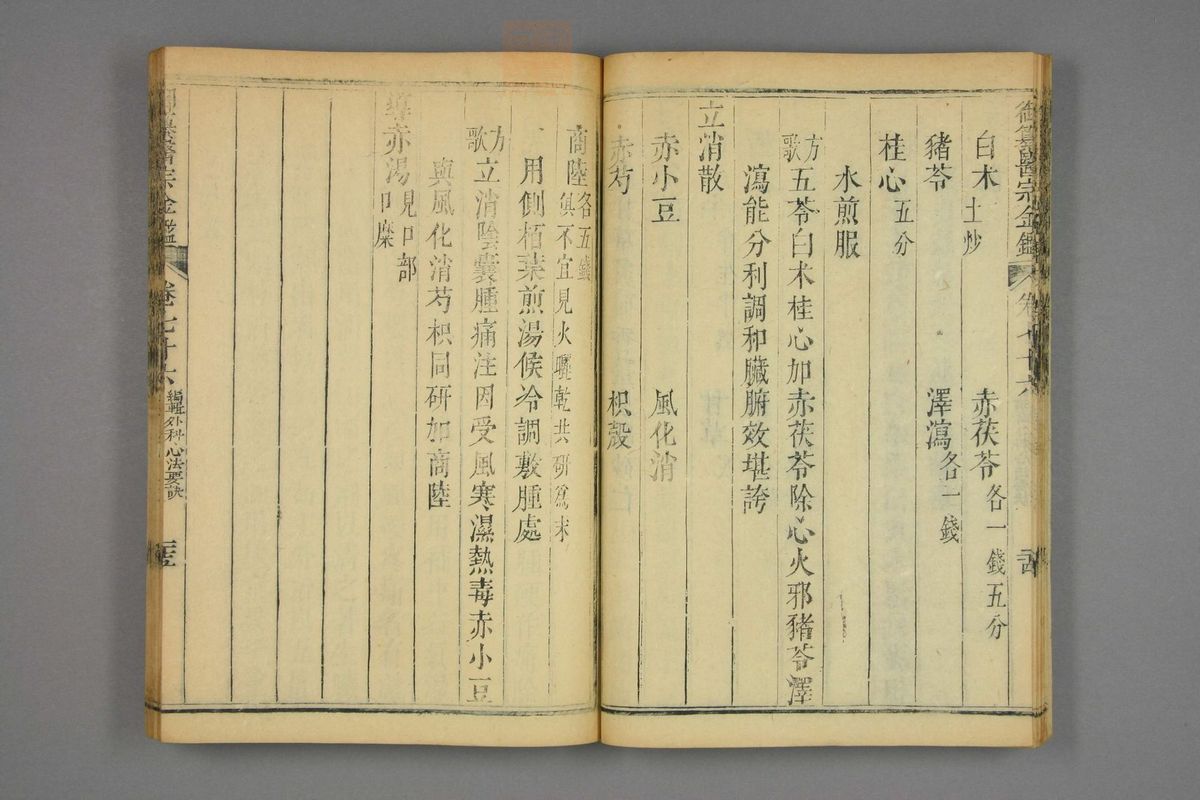 御纂醫宗金鑑 卷七十六 二十四
白朮土炒 赤茯苓各一錢五分
豬苓 澤瀉各一錢
桂心五分
水煎服
方歌 五苓白朮桂心加赤茯苓除心火邪豬苓澤
瀉能分利調和臟腑效堪誇
立消散
赤小豆 風化消
赤芍 枳殼
商陸各五錢俱不宜見火曬乾共研爲末
用側栢葉煎湯候冷調敷腫處
方歌 立消陰囊腫痛注因受風寒濕熱毒赤小豆
與風化消芍枳同研加商陸
導赤湯見口部口糜
御纂醫宗金鑑 卷七十六 編輯外科心法要訣 二十五